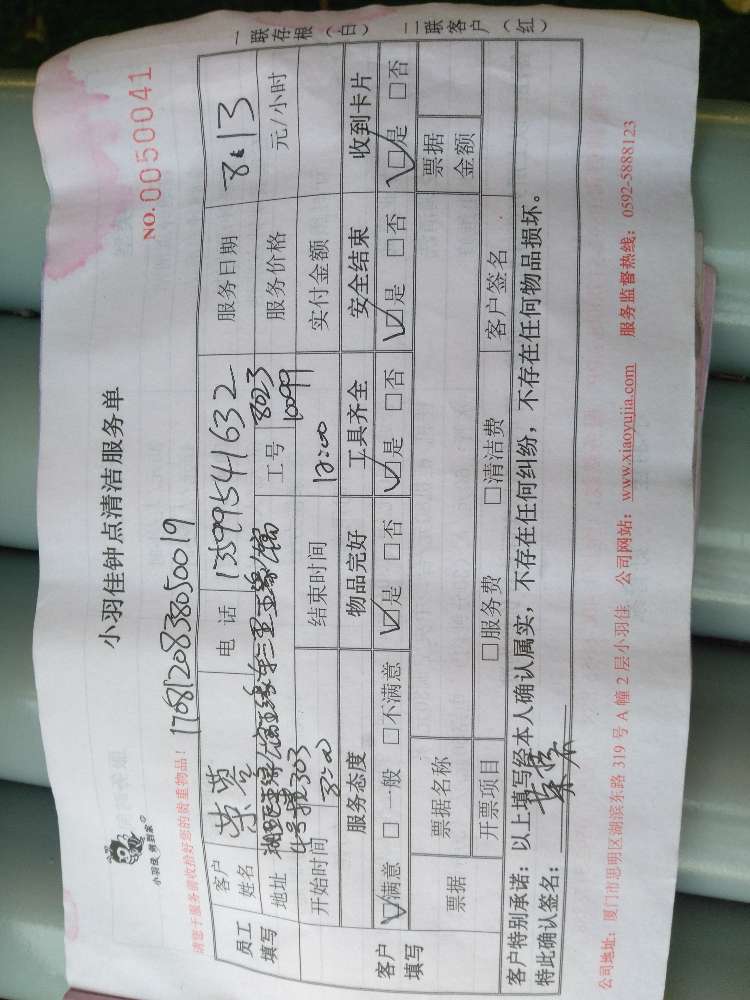 小羽佳 帮到家
小羽佳钟点清洁服务单
NO.0050041
请您于服务前收拾好您的贵重物品!
1708120838050019
员工填写 客户姓名 电话 13599541632 服务日期 8.13
地址 工号 8023 10099 服务价格 元/小时
4号楼303
开始时间 结束时间 12:00 实付金额
客户填写 服务态度 物品完好 工具齐全 安全结束 收到卡片
☑满意 □一般 □不满意 ☑是 □否 ☑是 □否 ☑是 □否 ☑是 □否
票据 票据名称 票据金额
开票项目 □服务费 □清洁费 客户签名
客户特别承诺:以上填写经本人确认属实,不存在任何纠纷,不存在任何物品损坏。
特此确认签名:
公司地址:厦门市思明区湖滨东路 319 号 A 幢 2 层小羽佳 公司网站:www.xiaoyujia.com 服务监督热线:0592-5888123
一联存根(白) 二联客户(红)